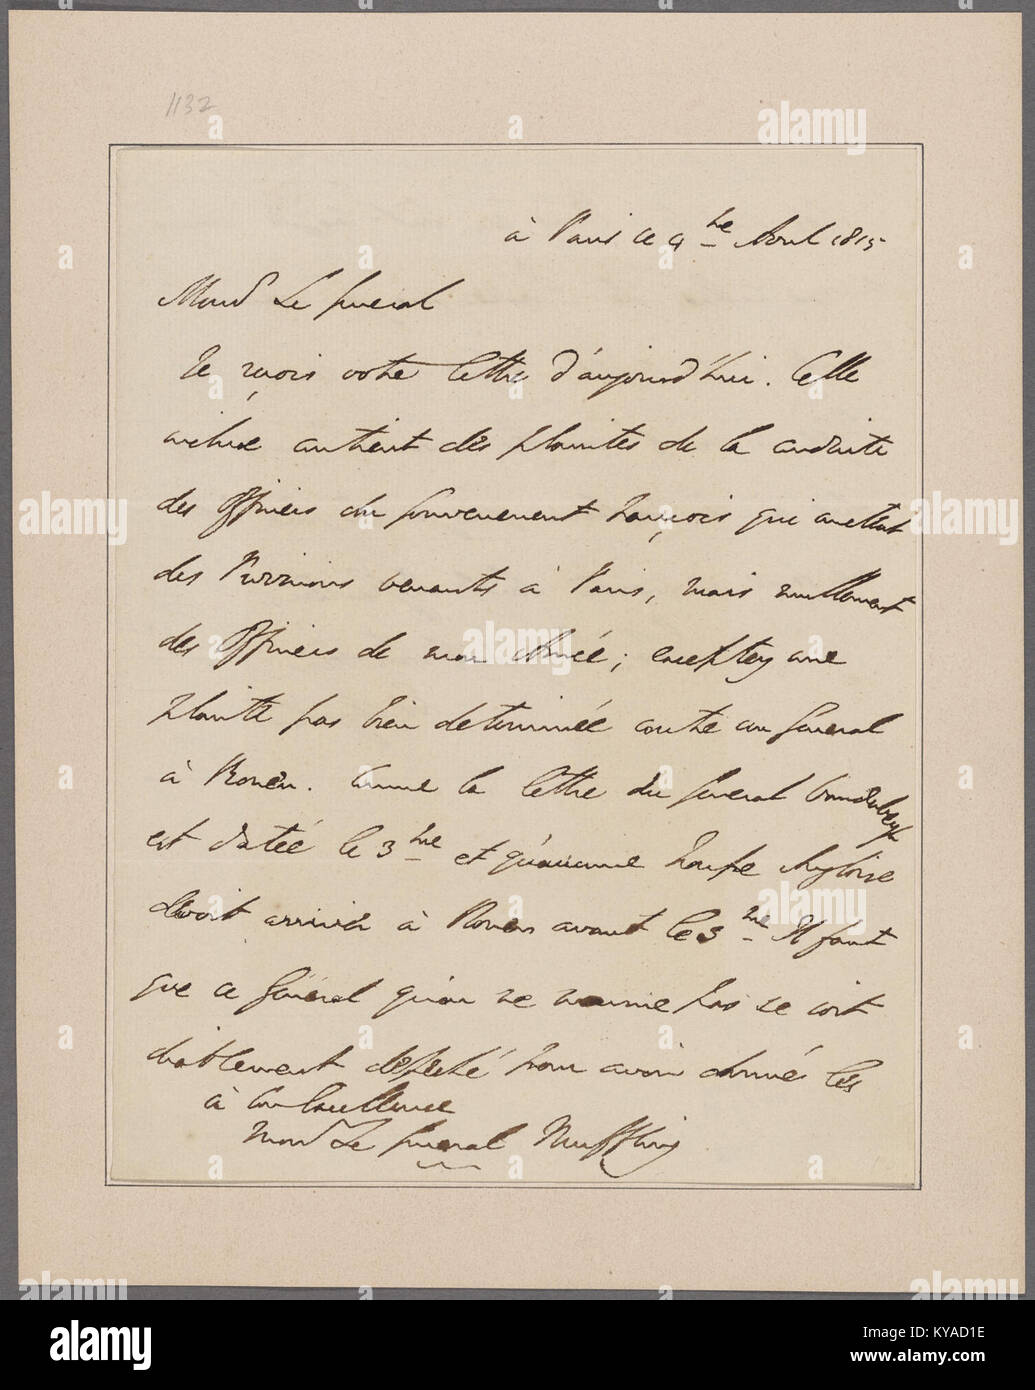 1132
à Paris ce 4 me Aout 1815
Mons.r Le General
Je reçois votre lettre d'aujourd'hui. Celle
incluse contient des plaintes de la conduite
des Officiers du Gouvernement François qui arrettent
des Prussiens venants à Paris, mais nullement
des Officiers de mon Armée; exceptez une
plainte pas bien determinée contre un General
à Rouen. Comme la lettre du General
est datée le 3 me et qu'aucune troupe Angloise
devoit arriver à Rouen avant le 3 me Il faut
que ce Général qu'on ne nomme pas se soit
diablement depeché pour avoir donné les
à Son Excellence
Mons.r Le General Muffling
alamy
Image ID: KYAD1E
www.alamy.com